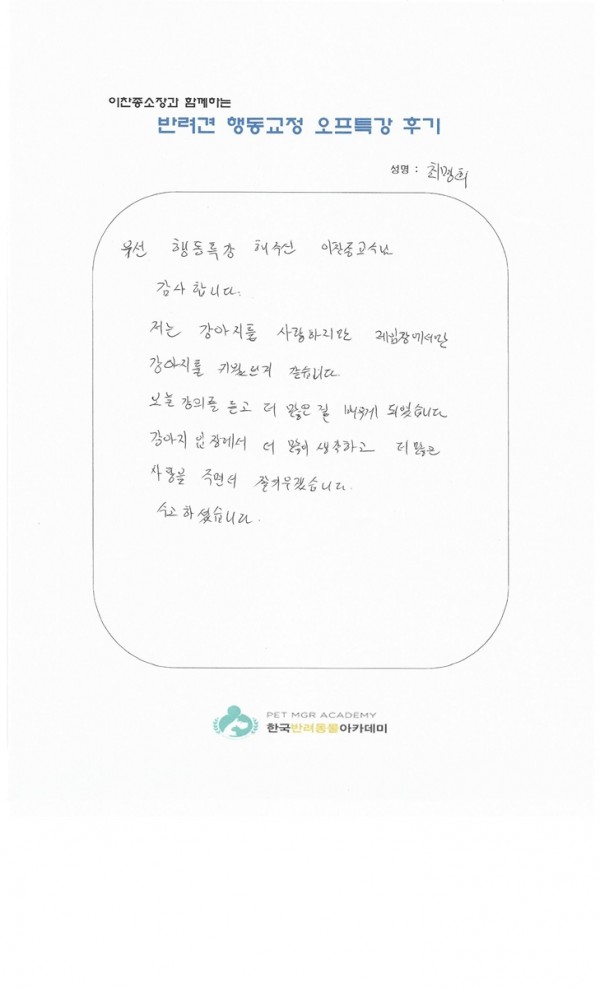 이찬종소장과 함께하는
반려견 행동교정 오프특강 후기
성명 : 최명희
우선 행동특강 해주신 이찬종교수님
감사합니다.
저는 강아지를 사랑하지만 제입장에서만
강아지를 키웠던거 같습니다
오늘 강의를 듣고 더 많은걸 배우게 되었습니다
강아지 입장에서 더 많이 생각하고 더 많은
사랑을 주면서 잘키우겠습니다.
수고하셨습니다.
PET MGR ACADEMY
한국반려동물아카데미